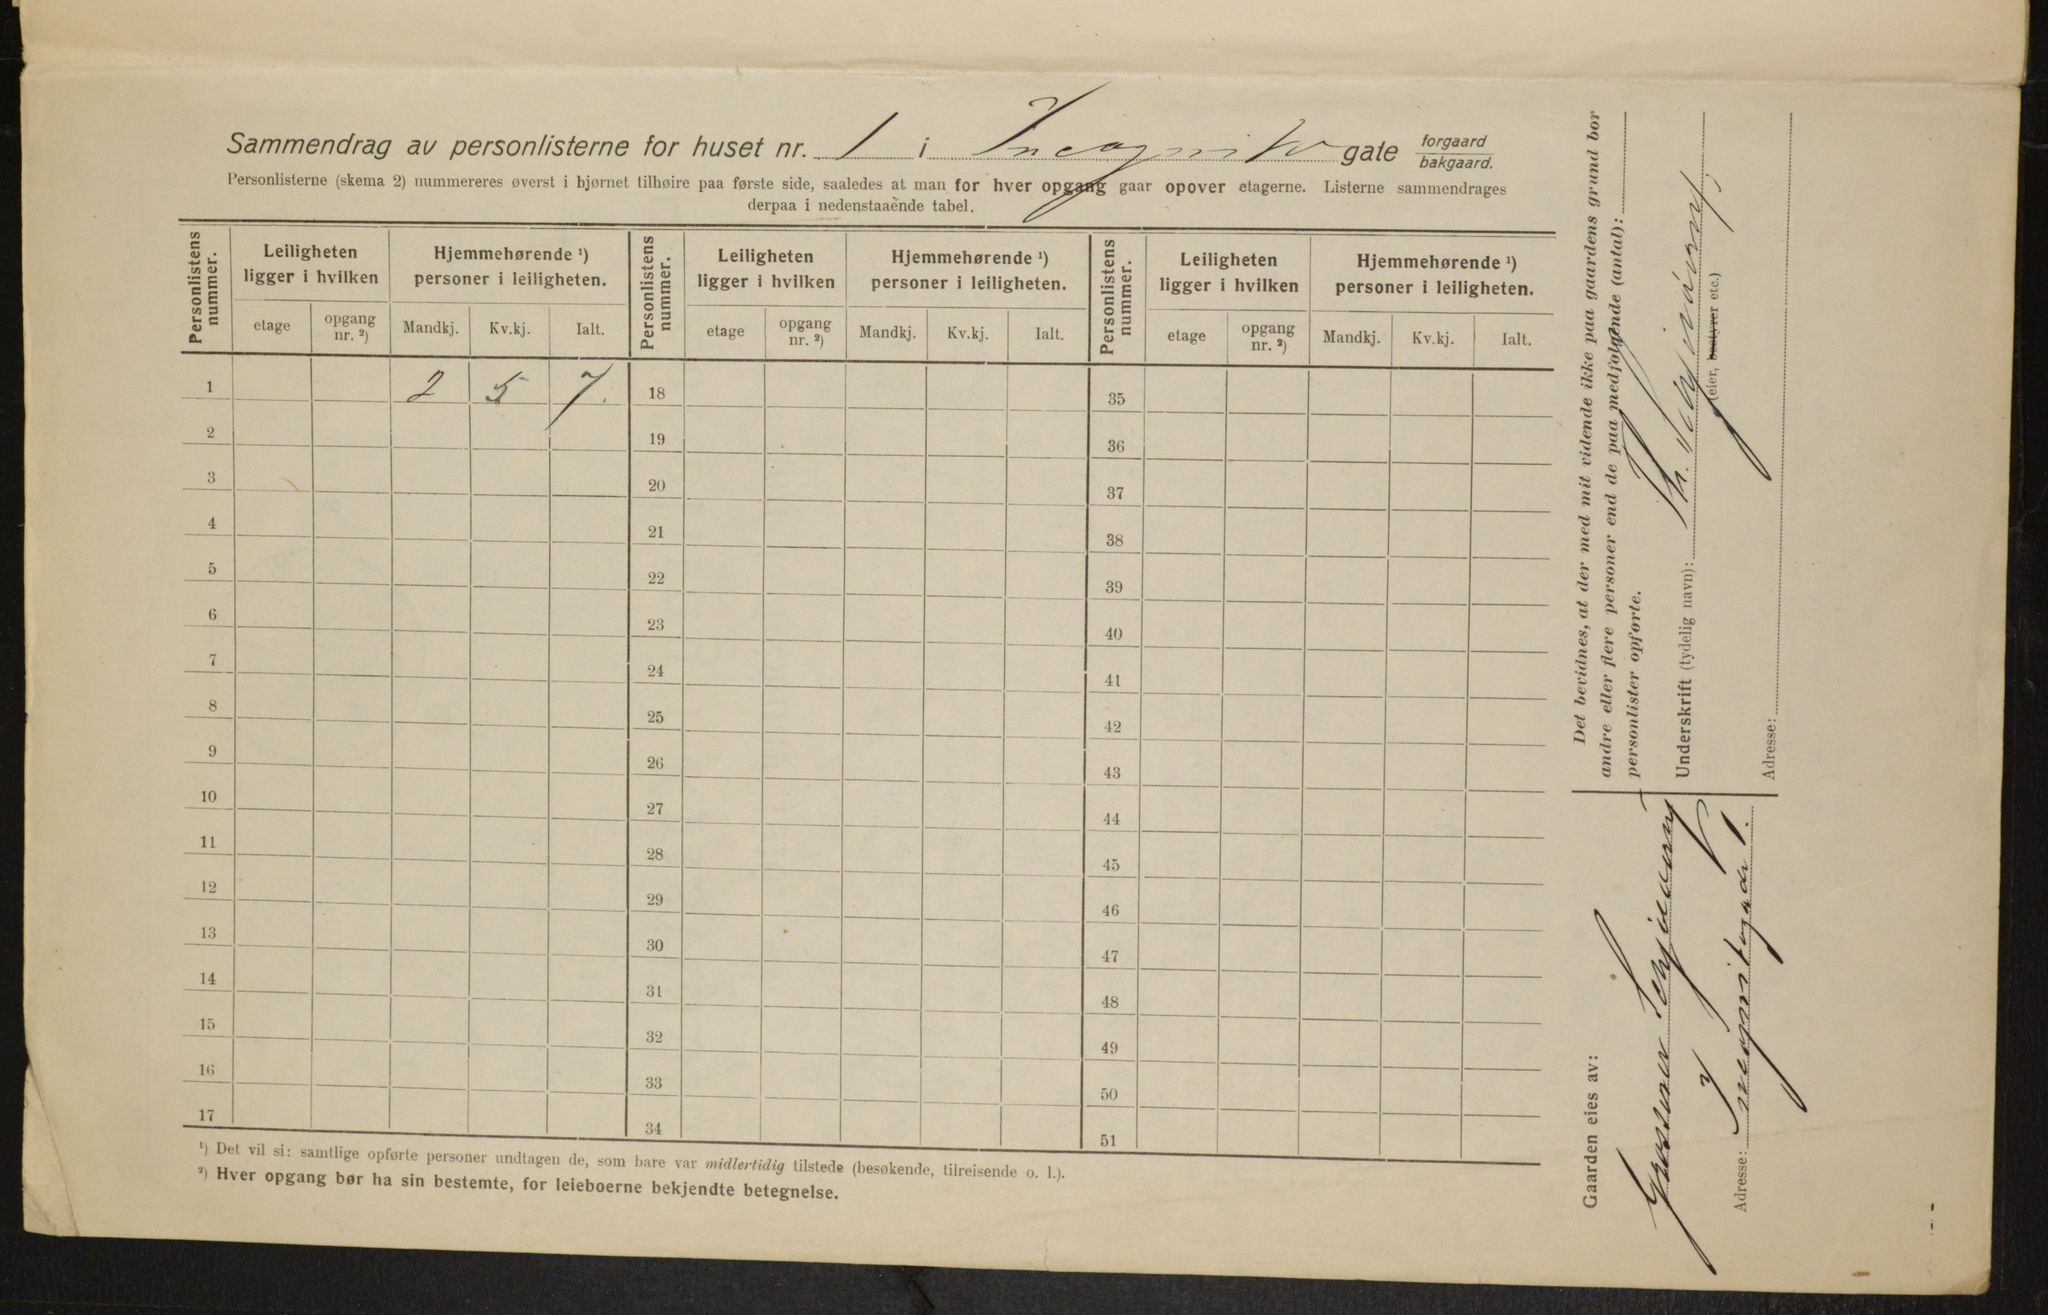 Sammendrag av personlisterne for huset nr. 1 i Incognito gate forgaard bakgaard.
Personlisterne (skema 2) nummereres øverst i hjørnet tilhøire paa første side, saaledes at man for hver opgang gaar opover etagerne. Listerne sammendrages
derpaa i nedenstaaende tabel.
Personlistens nummer. Leiligheten ligger i hvilken Hjemmehørende ¹) personer i leiligheten. Personlistens nummer. Leiligheten ligger i hvilken Hjemmehørende ¹) personer i leiligheten. Personlistens nummer. Leiligheten ligger i hvilken Hjemmehørende ¹) personer i leiligheten.
etage opgang nr. ²) Mandkj. Kv.kj. Ialt. etage opgang nr. ²) Mandkj. Kv.kj. Ialt. etage opgang nr. ²) Mandkj. Kv.kj. Ialt.
1 2 5 7. 18 35
2 19 36
3 20 37
4 21 38
5 22 39
6 23 40
7 24 41
8 25 42
9 26 43
10 27 44
11 28 45
12 29 46
13 30 47
14 31 48
15 32 49
16 33 50
17 34 51
¹) Det vil si: samtlige opførte personer undtagen de, som bare var midlertidig tilstede (besøkende, tilreisende o. l.).
²) Hver opgang bør ha sin bestemte, for leieboerne bekjendte betegnelse.
Det bevidnes, at der med mit vidende ikke paa gaardens grund bor
andre eller flere personer end de paa medfølgende (antal):
personlister opførte.
Underskrift (tydelig navn): Th.
(eier, bestyrer etc.)
Adresse:
Gaarden eies av:
Adresse: Incognitogade 1.